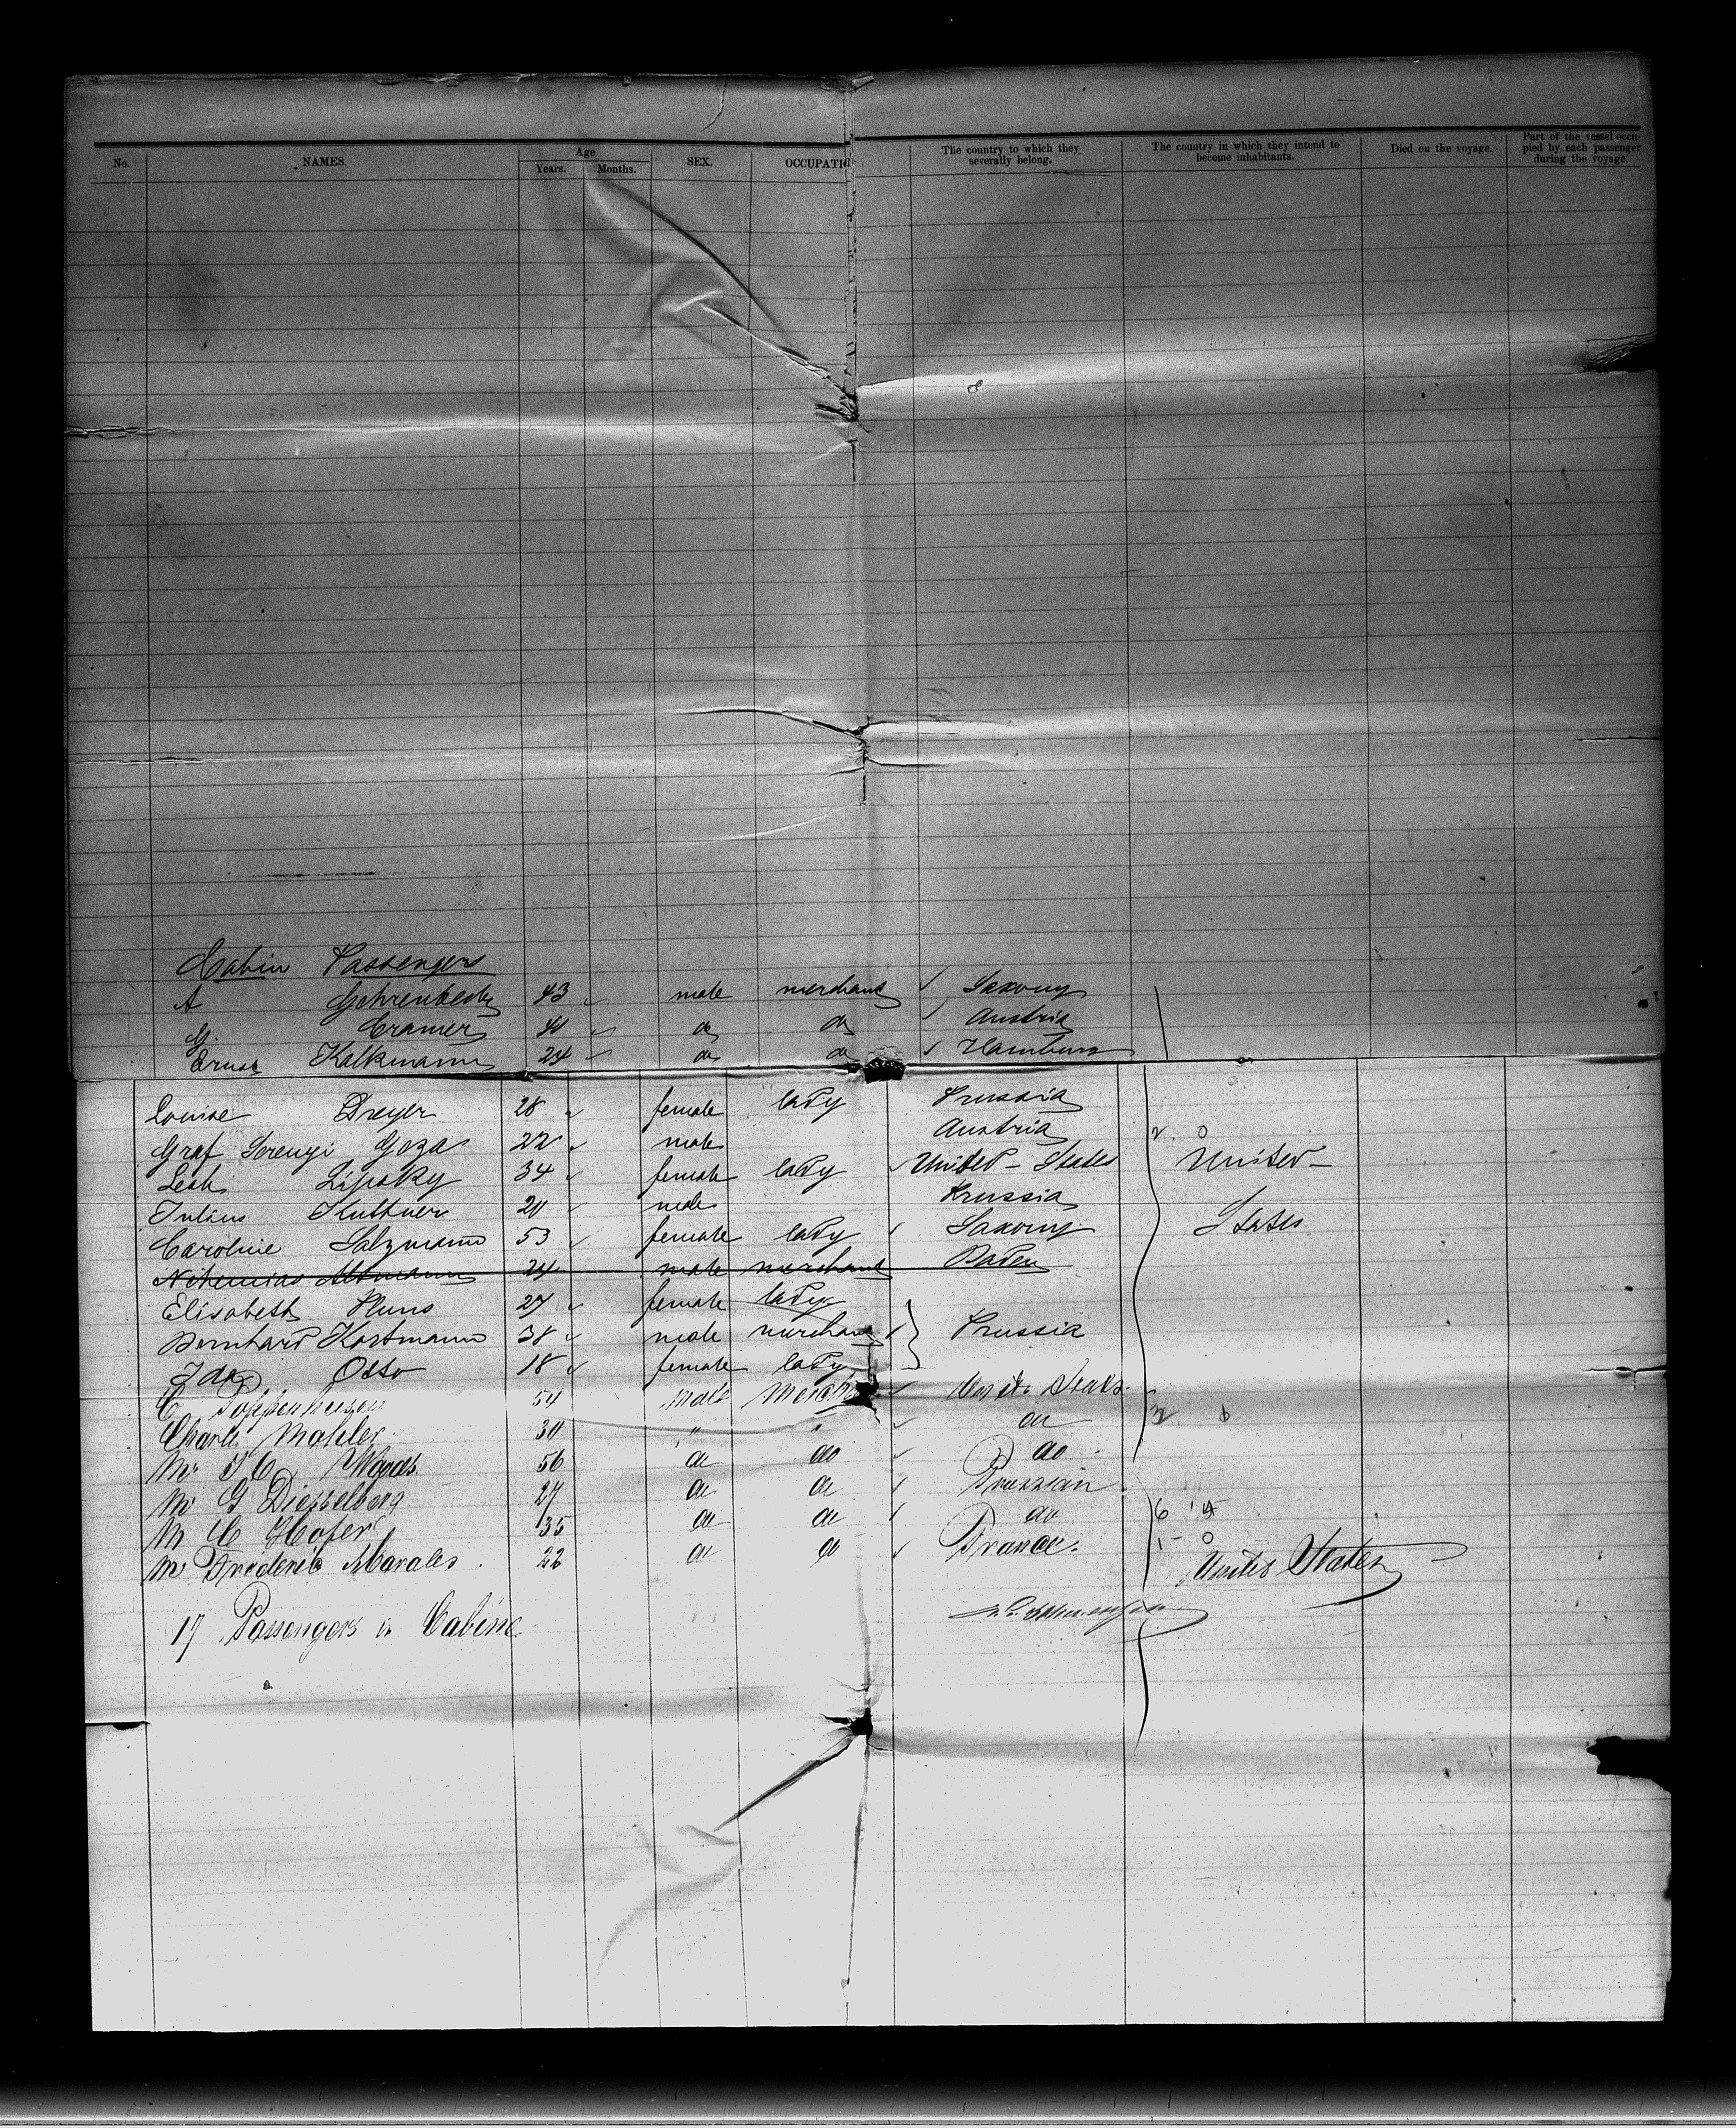 No. NAMES. Age Years. Months. SEX. OCCUPATIO The country to which they severally belong. The country in which they intend to become inhabitants. Died on the voyage. Part of the vessel occupied by each passenger during the voyage.
Cabin Passengers
A 43 male merchant Saxony
G. Cramer do do Austria
Ernst Kalkmann 24 do do Hamburg
Louise Dreyer 28 female lady Prussia
Graf Serenyi Goza 22 male Austria 2. 0
Leah Lipsky 34 female lady United-States United-
Julius Kuttner 20 male Prussia
Caroline Salzmann 53 female lady Saxony States
Nehemias Altmann 24 male merchant Baden
Elisabeth 27 female lady
Bernhard Kortmann 38 male merchant Prussia
Ida Otto 18 female lady
C Poppenhusen 54 male Merch States
Charles Mahler 30 " " do
Mr 56 do do do
Mr G Diesselberg 27 do do Prussian
M C Hofer 35 do do do
Mr Frederic Morales 22 do do France. United States
17 Passengers in Cabine